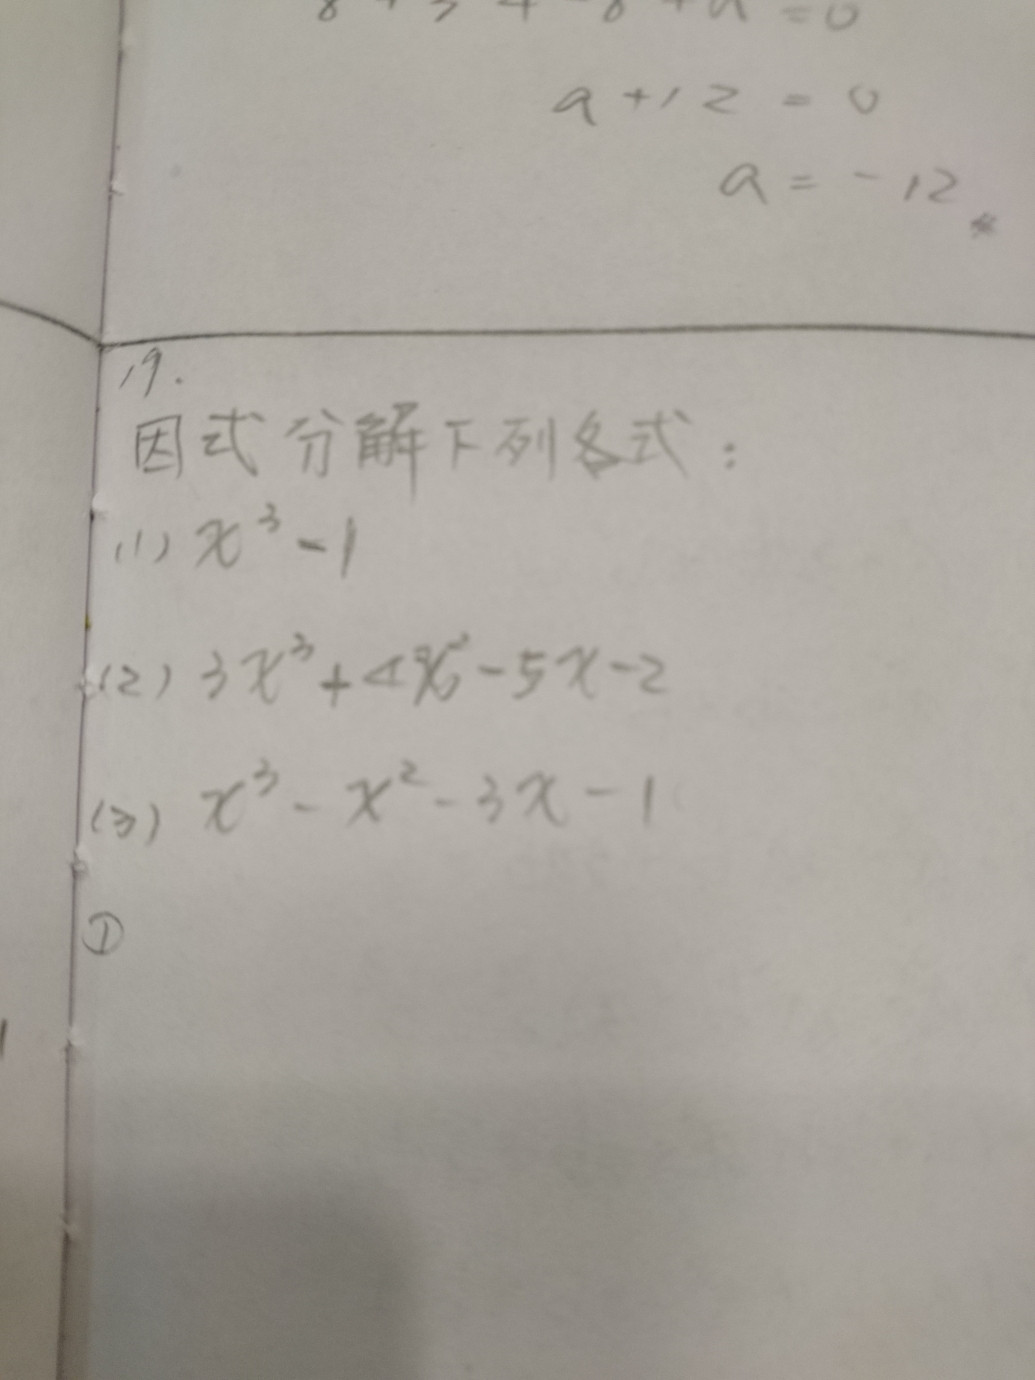 a + 12 = 0
a = -12
19.
因式分解下列各式：
(1) x³ - 1
(2) 3x³ + 4x² - 5x - 2
(3) x³ - x² - 3x - 1
①